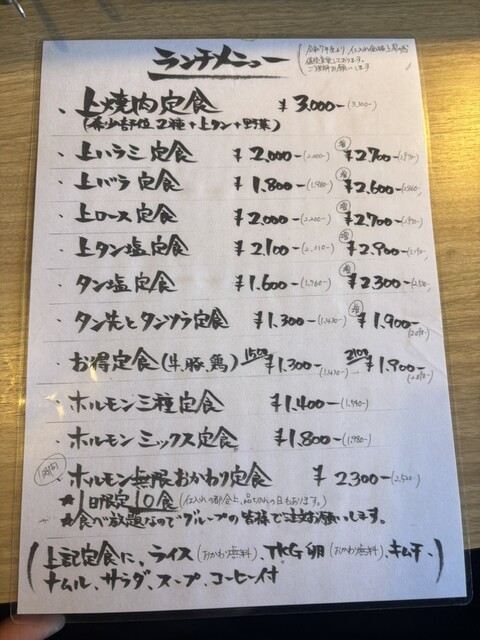 ランチメニュー
令和7年より、仕入れ価格上昇の為
価格変更しております。
ご理解お願いします
・上焼肉定食 ¥3,000-(3,300-)
(希少部位2種+上タン+野菜)
・上ハラミ定食 ¥2,000- 増¥2,700-(2,970-)
・上バラ定食 ¥1,800-(1,980-) 増¥2,600-(2,860-)
・上ロース定食 ¥2,000-(2,200-) 増¥2,700-(2,970-)
・上タン塩定食 ¥2,100-(2,310-) 増¥2,900-(3,190-)
・タン塩定食 ¥1,600-(1,760-) 増¥2,300-
・タン先とタンツラ定食 ¥1,300-(1,430-) 増¥1,900-(2,090-)
・お得定食(牛、豚、鶏) 150g ¥1,300-(1,430-) 210g ¥1,900-(2,090-)
・ホルモン三種定食 ¥1,400-(1,540-)
・ホルモンミックス定食 ¥1,800-(1,980-)
・ホルモン無限おかわり定食 ¥2300-(2,530-)
★1日限定10食(仕入れの都合上、品切れの日もあります。)
★食べ放題なのでグループの皆様でご注文お願いします。
(上記定食に、ライス(おかわり無料)、TKG卵(おかわり無料)、キムチ、
ナムル、サラダ、スープ、コーヒー付